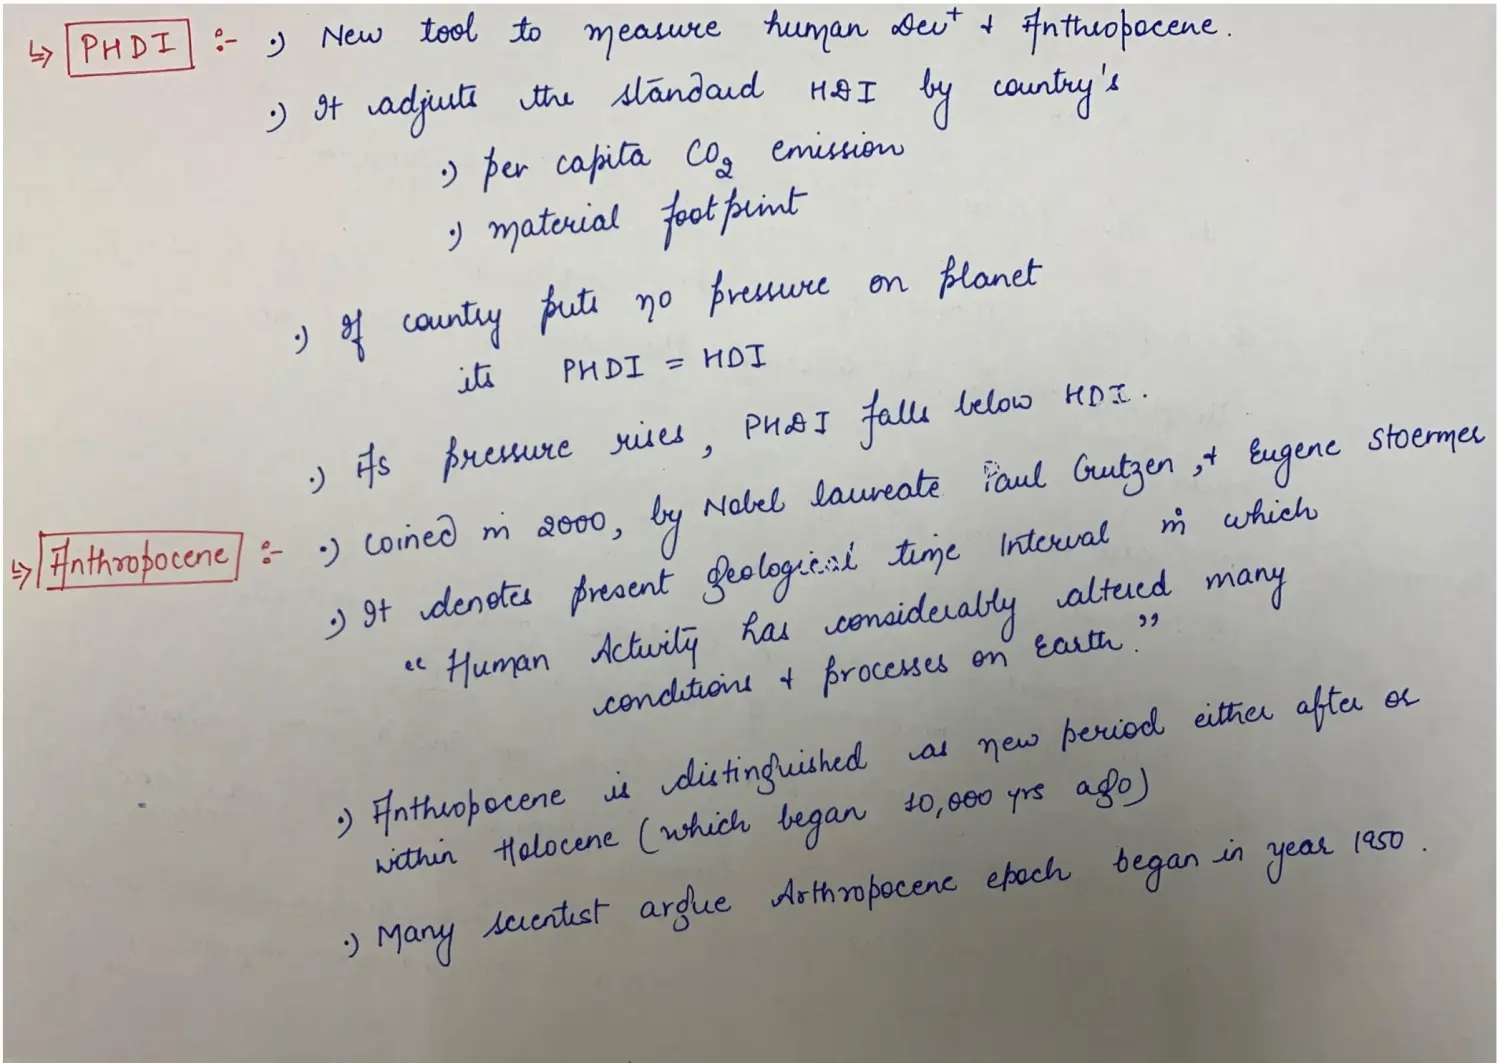 ↳ PHDI :- •) New tool to measure human Dev+ & Anthropocene.
•) It adjusts the standard HDI by country's
•) per capita CO₂ emission
•) material footprint
•) If country puts no pressure on planet
its PHDI = HDI
•) As pressure rises, PHDI falls below HDI.
↳ Anthropocene :- •) Coined in 2000, by Nobel laureate Paul Crutzen, & Eugene Stoermer
•) It denotes present geological time Interval in which
“ Human Activity has considerably altered many
conditions & processes on Earth.”
•) Anthropocene is distinguished as new period either after or
within Holocene (which began 10,000 yrs ago)
•) Many scientist argue Arthropocene epoch began in year 1950.